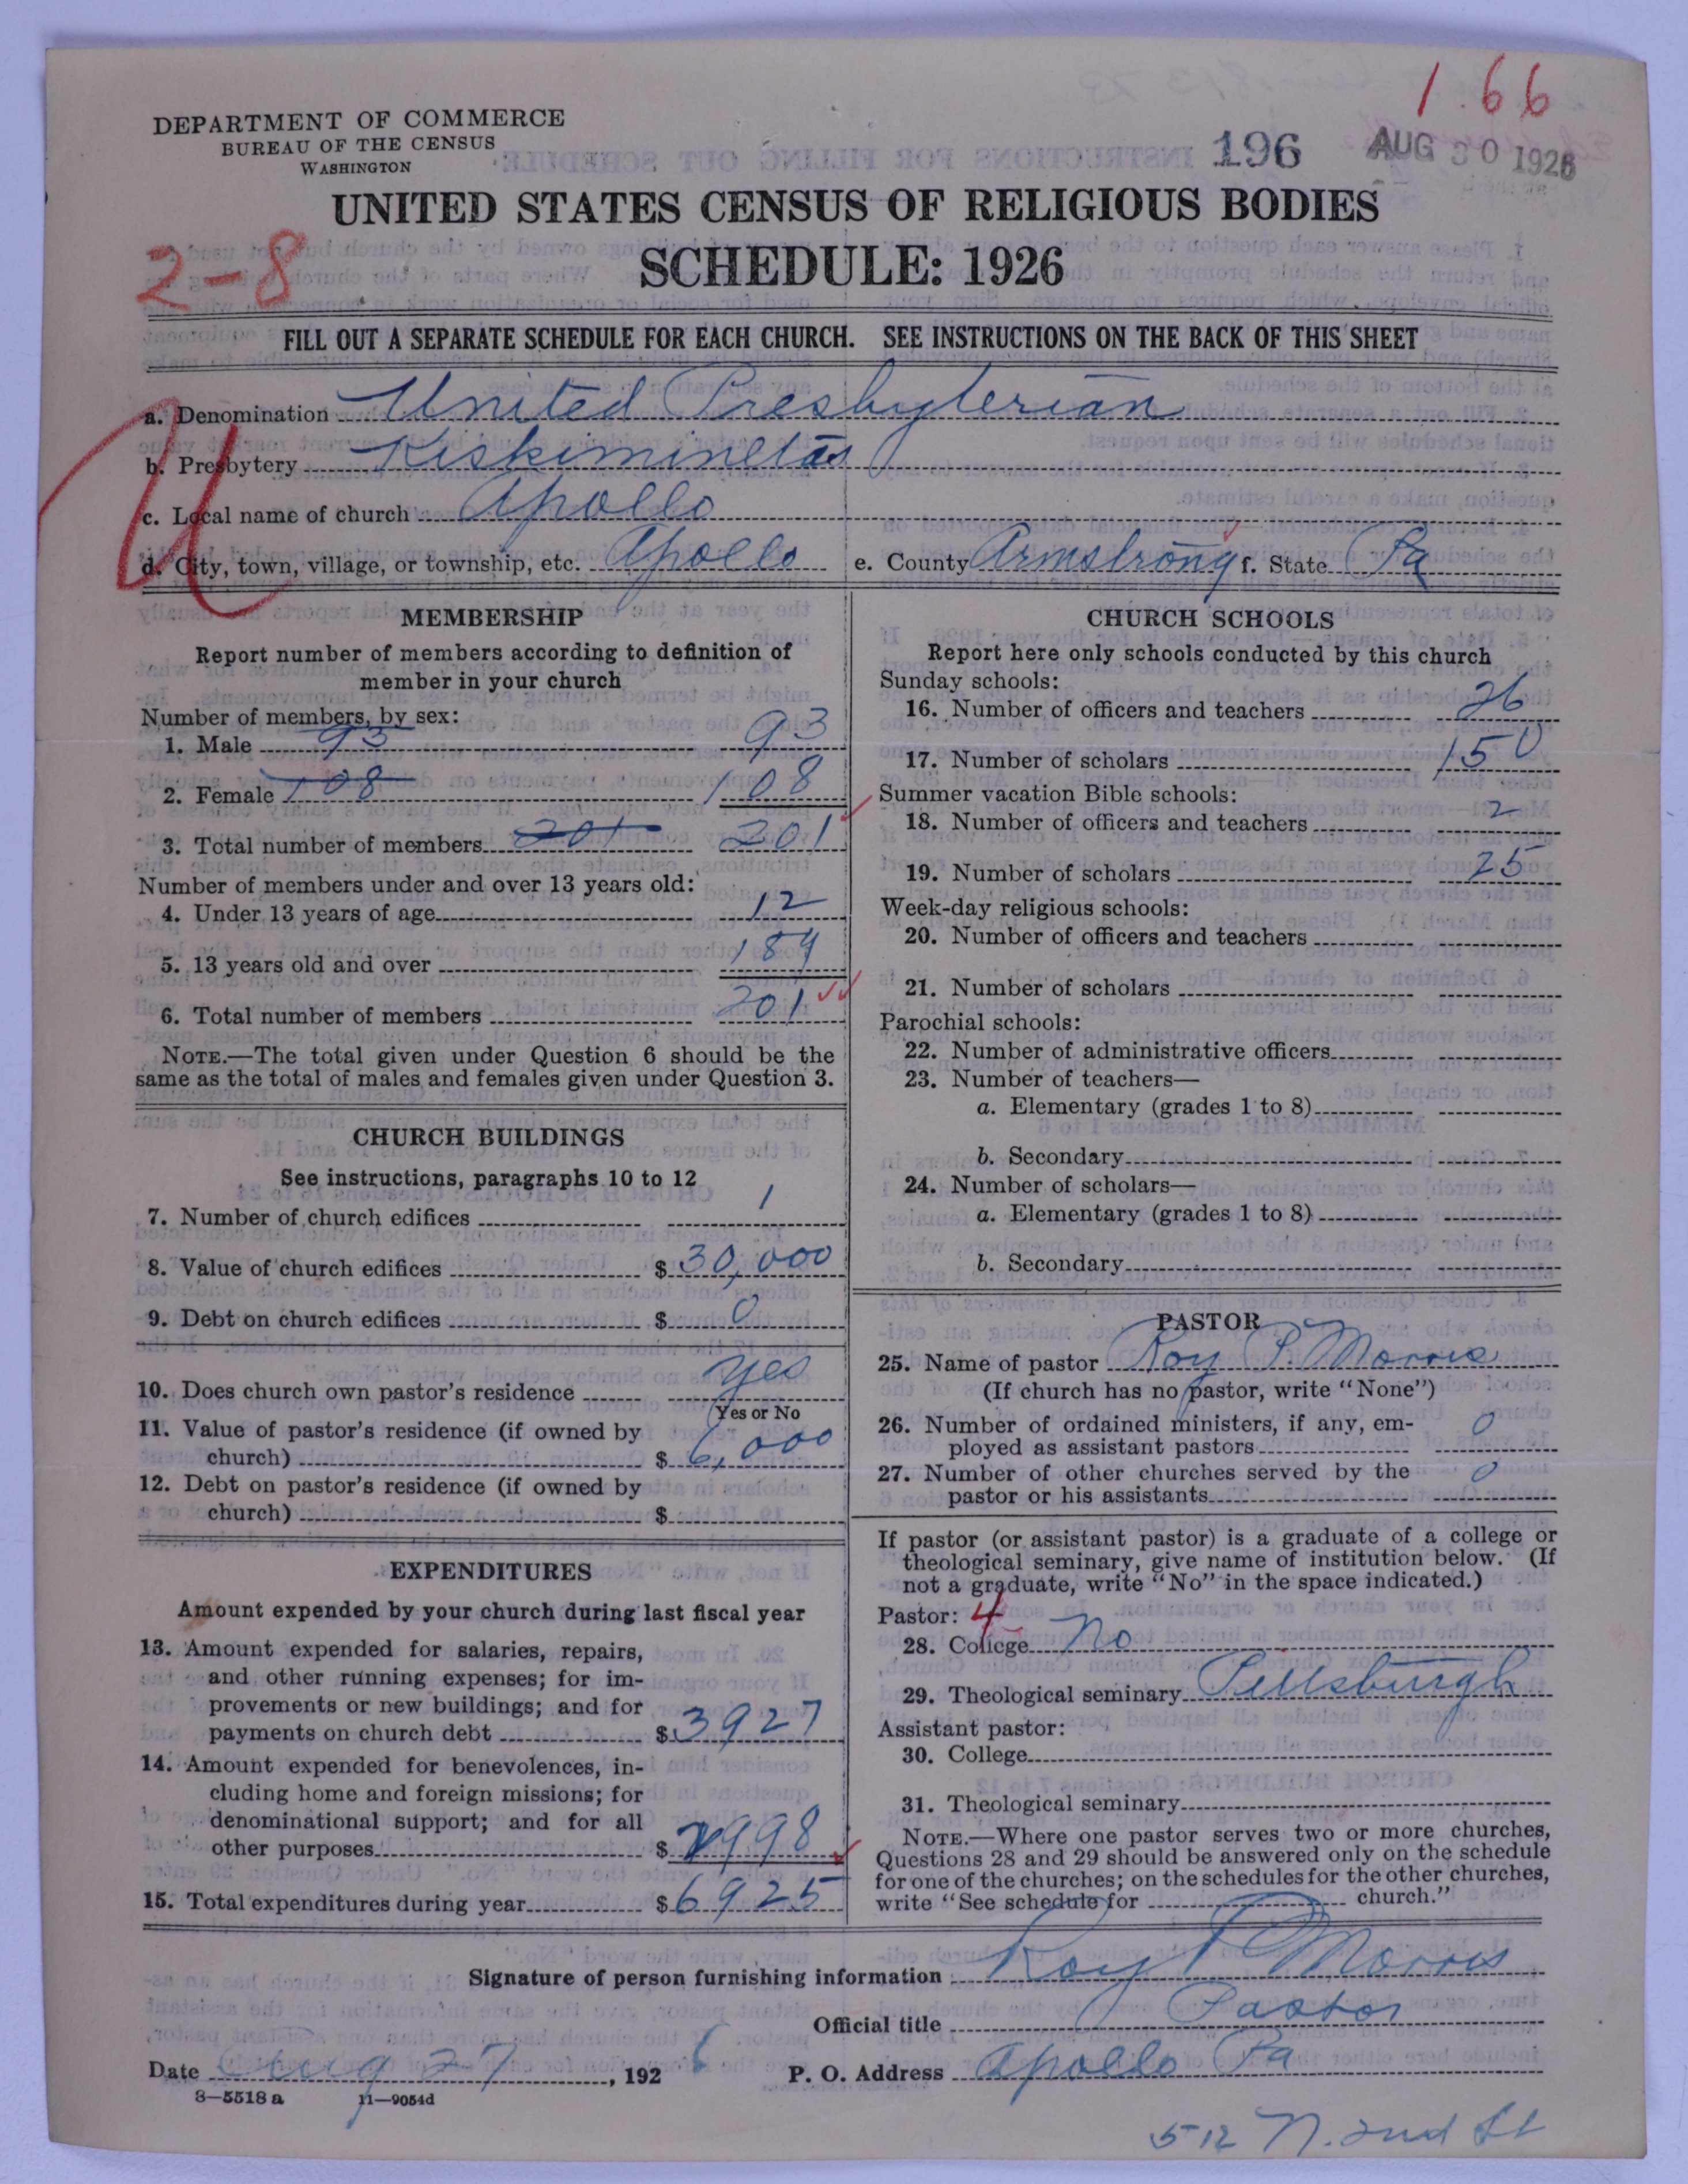 1.66
DEPARTMENT OF COMMERCE
BUREAU OF THE CENSUS
WASHINGTON
196 AUG 30 1926
UNITED STATES CENSUS OF RELIGIOUS BODIES
2-8
SCHEDULE: 1926
FILL OUT A SEPARATE SCHEDULE FOR EACH CHURCH. SEE INSTRUCTIONS ON THE BACK OF THIS SHEET
a. Denomination United Presbyterian
b. Presbytery Kiskiminetas
c. Local name of church Apollo
d. City, town, village, or township, etc. Apollo e. County Armstrong f. State Pa
MEMBERSHIP
Report number of members according to definition of
member in your church
Number of members, by sex:
1. Male 93 93
2. Female 108 108
3. Total number of members 201 201
Number of members under and over 13 years old:
4. Under 13 years of age 12
5. 13 years old and over 189
6. Total number of members 201
NOTE.—The total given under Question 6 should be the
same as the total of males and females given under Question 3.
CHURCH BUILDINGS
See instructions, paragraphs 10 to 12
7. Number of church edifices 1
8. Value of church edifices $ 30,000
9. Debt on church edifices $ 0
10. Does church own pastor's residence yes
Yes or No
11. Value of pastor's residence (if owned by
church) $ 6,000
12. Debt on pastor's residence (if owned by
church) $
EXPENDITURES
Amount expended by your church during last fiscal year
13. Amount expended for salaries, repairs,
and other running expenses; for im-
provements or new buildings; and for
payments on church debt $ 3927
14. Amount expended for benevolences, in-
cluding home and foreign missions; for
denominational support; and for all
other purposes $ 2998
15. Total expenditures during year $ 6925
CHURCH SCHOOLS
Report here only schools conducted by this church
Sunday schools:
16. Number of officers and teachers 26
17. Number of scholars 150
Summer vacation Bible schools:
18. Number of officers and teachers 2
19. Number of scholars 25
Week-day religious schools:
20. Number of officers and teachers
21. Number of scholars
Parochial schools:
22. Number of administrative officers
23. Number of teachers—
a. Elementary (grades 1 to 8)
b. Secondary
24. Number of scholars—
a. Elementary (grades 1 to 8)
b. Secondary
PASTOR
25. Name of pastor Roy P. Morris
(If church has no pastor, write "None")
26. Number of ordained ministers, if any, em-
ployed as assistant pastors 0
27. Number of other churches served by the
pastor or his assistants 0
If pastor (or assistant pastor) is a graduate of a college or
theological seminary, give name of institution below. (If
not a graduate, write "No" in the space indicated.)
Pastor: 4
28. College No
29. Theological seminary Pittsburgh
Assistant pastor:
30. College
31. Theological seminary
NOTE.—Where one pastor serves two or more churches,
Questions 28 and 29 should be answered only on the schedule
for one of the churches; on the schedules for the other churches,
write "See schedule for church."
Signature of person furnishing information Roy P Morris
Official title Pastor
Date Aug 27, 1926 P. O. Address Apollo Pa
8—5518 a 11—9054d
512 N. 2nd St